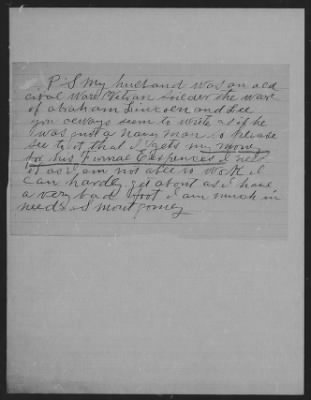 P S My husband was an old
civil Ware Vetran soldier the ware
of abraham Lincoln and Lee
you always seem to write as if he
was just a navy man so please
see to it that I gets my money
for his Furnal Expences I need
it as I am not able to work I
can hardly get about as I have
a very bad foot I am much in
need S Montgomery